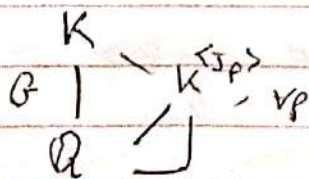 K
G K^{<J_p>} v_p
Q